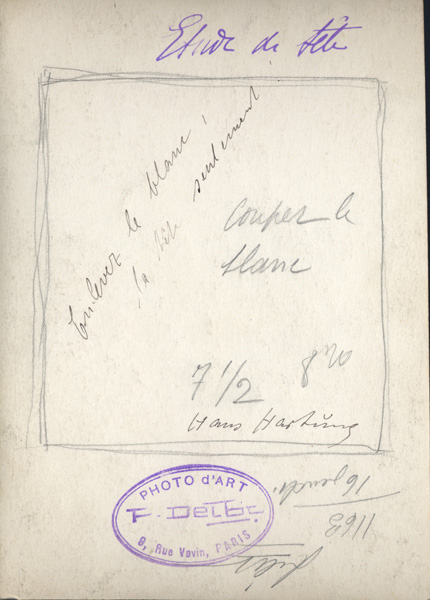 Etude de tête
Enlever le blanc,
la tête seulement
Couper le
blanc
7 1/2
Hans Hartung
PHOTO d'ART
9, Rue Vavin, PARIS
16
1163